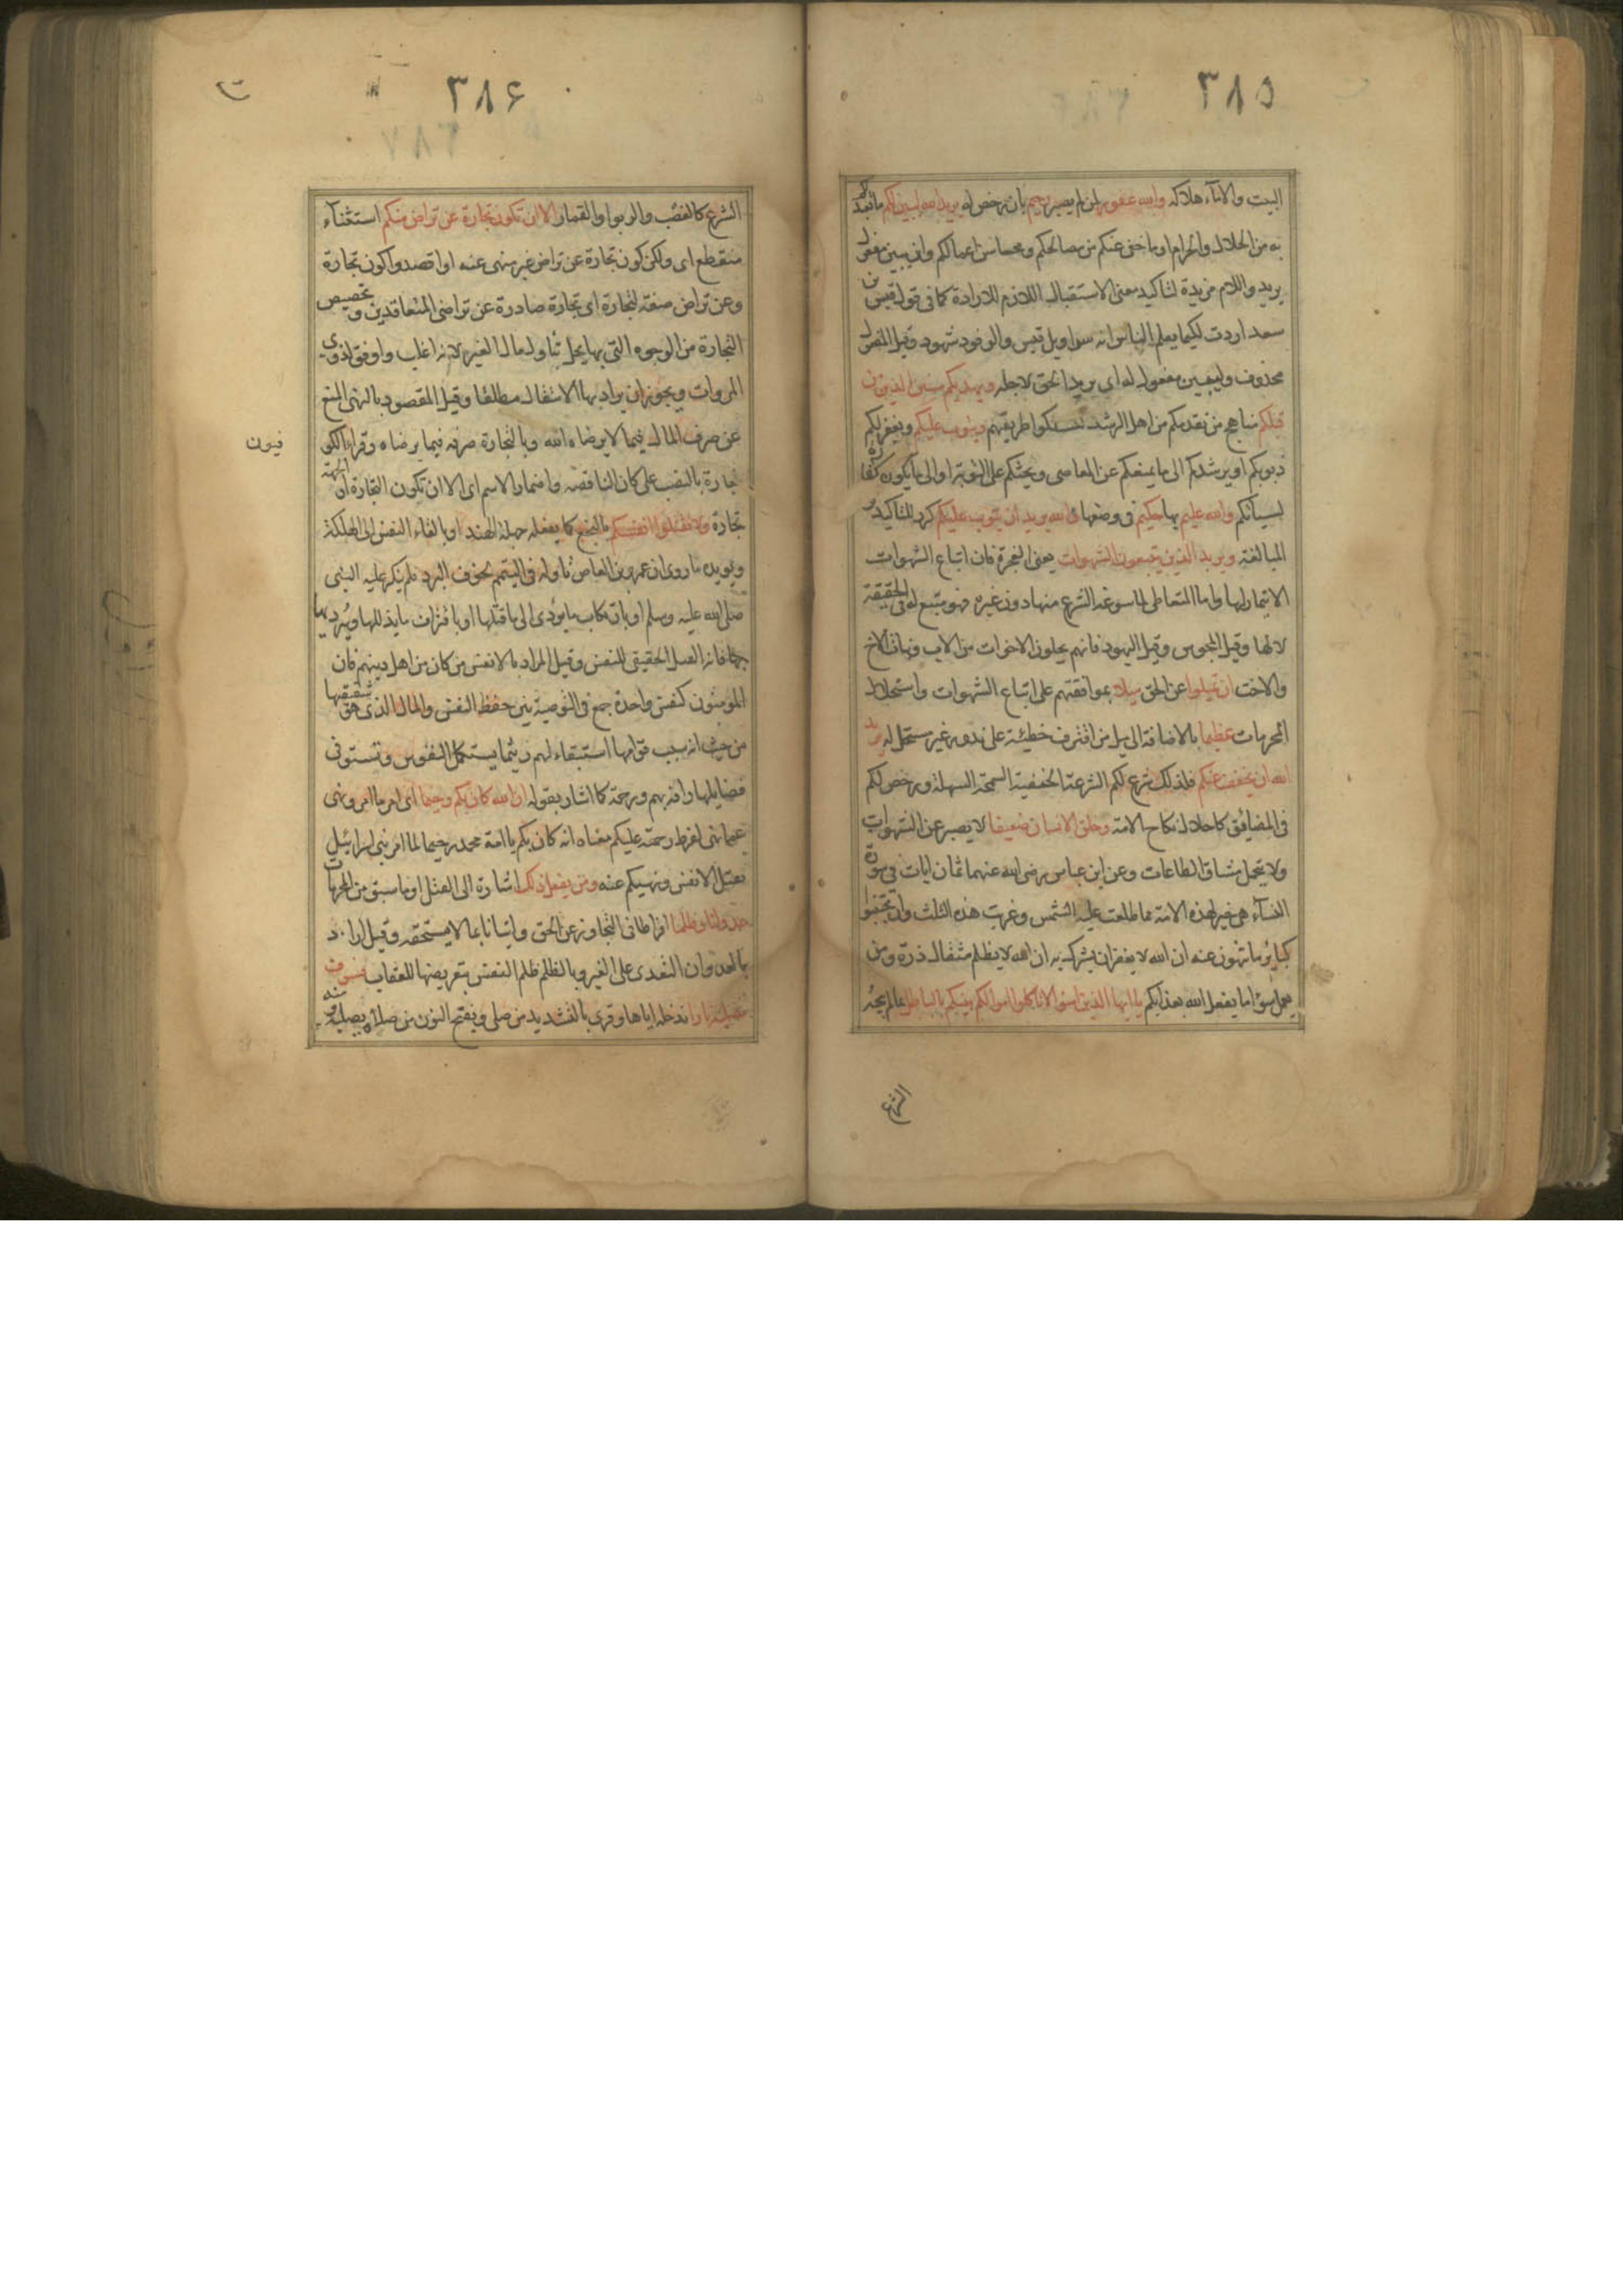 ٣٨٥
البيت والاماء هلاكه والله غفور لمن لم يصبر رحيم بان رخص له يريد الله ليبين لكم ما تعبدكم
به من الحلال والحرام او ما خفى عنكم من مصالحكم ومحاسن اعمالكم وان يبين مفعول
يريد واللام مزيدة لتاكيد معنى الاستقبال اللازم للارادة كما فى قول قيس بن
سعد اردت لكيما يعلم الناس انه سراويل قيس والوفود شهود وقيل المفعول
محذوف وليبين مفعول له اى يريد الحق لاجله ويهديكم سنن الذين من
قبلكم مناهج من تقدمكم من اهل الرشد لتسلكوا طريقهم ويتوب عليكم ويغفر لكم
ذنوبكم او يرشدكم الى ما يمنعكم عن المعاصى ويحثكم على التوبة او الى ما يكون كفارة
لسيئاتكم والله عليم بها حكيم فى وضعها والله يريد ان يتوب عليكم كرر للتاكيد و
المبالغة ويريد الذين يتبعون الشهوات يعنى الفجرة فان اتباع الشهوات
الايتمار لها واما المتعاطى لما سوغه الشرع منها دون غيره فهو متبع له فى الحقيقة
لا لها وقيل المجوس وقيل اليهود فانهم يحلون الاخوات من الاب وبنات الاخ
والاخت ان تميلوا عن الحق ميلا بموافقتهم على اتباع الشهوات واستحلال
المحرمات عظيما بالاضافة الى ميل من اقترف خطيئة على ندور غير مستحل له يريد
الله ان يخفف عنكم فلذلك شرع لكم الشرعة الحنفية السمحة السهلة ورخص لكم
فى المضائق كاحلال نكاح الامة وخلق الانسان ضعيفا لا يصبر عن الشهوات
ولا يتحمل مشاق الطاعات وعن ابن عباس رضى الله عنهما ثمان ايات فى سورة
النسآء هى خير لهذه الامة مما طلعت عليه الشمس وغربت هذه الثلث وان تجتنبوا
كبائر ما تنهون عنه ان الله لا يغفر ان يشرك به ان الله لا يظلم مثقال ذرة ومن
يعمل سوءا ما يفعل الله بعذابكم يا ايها الذين امنوا لا تاكلوا اموالكم بينكم بالباطل بما لم يبحه
الشرع
٣٨۶
الشرع كالغصب والربوا والقمار الا ان تكون تجارة عن تراض منكم استثنآء
منقطع اى ولكن كون تجارة عن تراض غير منهى عنه او اقصدوا كون تجارة
وعن تراض صفة لتجارة اى تجارة صادرة عن تراضى المتعاقدين وتخصيص
التجارة من الوجوه التى بها يحل تناول مال الغير لانه اغلب واوفق لذوى
المروات ويجوز ان يراد بها الانتقال مطلقا وقيل المقصود بالنهى المنع
عن صرف المال فيما لا يرضاه الله وبالتجارة صرفه فيما يرضاه وقراء الكو
فيون
تجارة بالنصب على كان الناقصة واضمار الاسم اى الا ان تكون التجارة او الجهة
تجارة ولا تقتلوا انفسكم بالبخع كما يفعله جهلة الهند او بالقاء النفس الى الهلكة
ويويده ما روى ان عمرو بن العاص تاوله فى التيمم لخوف البرد فلم ينكر عليه النبى
صلى الله عليه وسلم او بارتكاب ما يؤدى الى قتلها او باقتراف ما يذللها ويرديها
فانه القتل الحقيقى للنفس وقيل المراد بالانفس من كان من اهل دينهم فان
المومنون كنفس واحدة جمع فى التوصية بين حفظ النفس والمال الذى هو شقيقها
من حيث انه سبب قوامها استبقاء لهم ريثما يستكمل النفوس وتستوفى
فضايلها رافة بهم ورحمة كما اشار بقوله ان الله كان بكم رحيما اى امر ما امر ونهى
عما نهى لفرط رحمته عليكم معناه انه كان بكم يا امة محمد رحيما لما امر بنى اسرائيل
بقتل الانفس ونهيكم عنه ومن يفعل ذلك اشارة الى القتل او ما سبق من المحرمات
عدوانا وظلما افراطا فى التجاوز عن الحق واتيانا بما لا يستحقه وقيل اراد
بالعدوان التعدى على الغير وبالظلم ظلم النفس بتعريضها للعقاب فسوف
نصليه نارا ندخله اياها وقرى بالتشديد من صلى وبفتح النون من صلاه يصليه ومنه